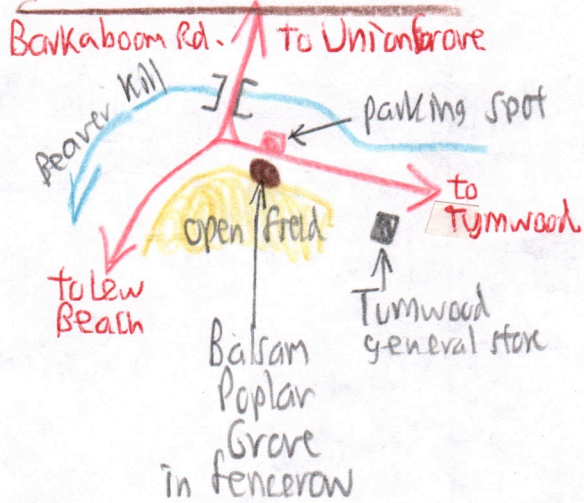 Barkaboom Rd. to Union Grove
Beaver Kill
parking spot
to
Tymwood
open field
to Lew
Beach
Tumwood
general store
Balsam
Poplar
Grove
in fencerow